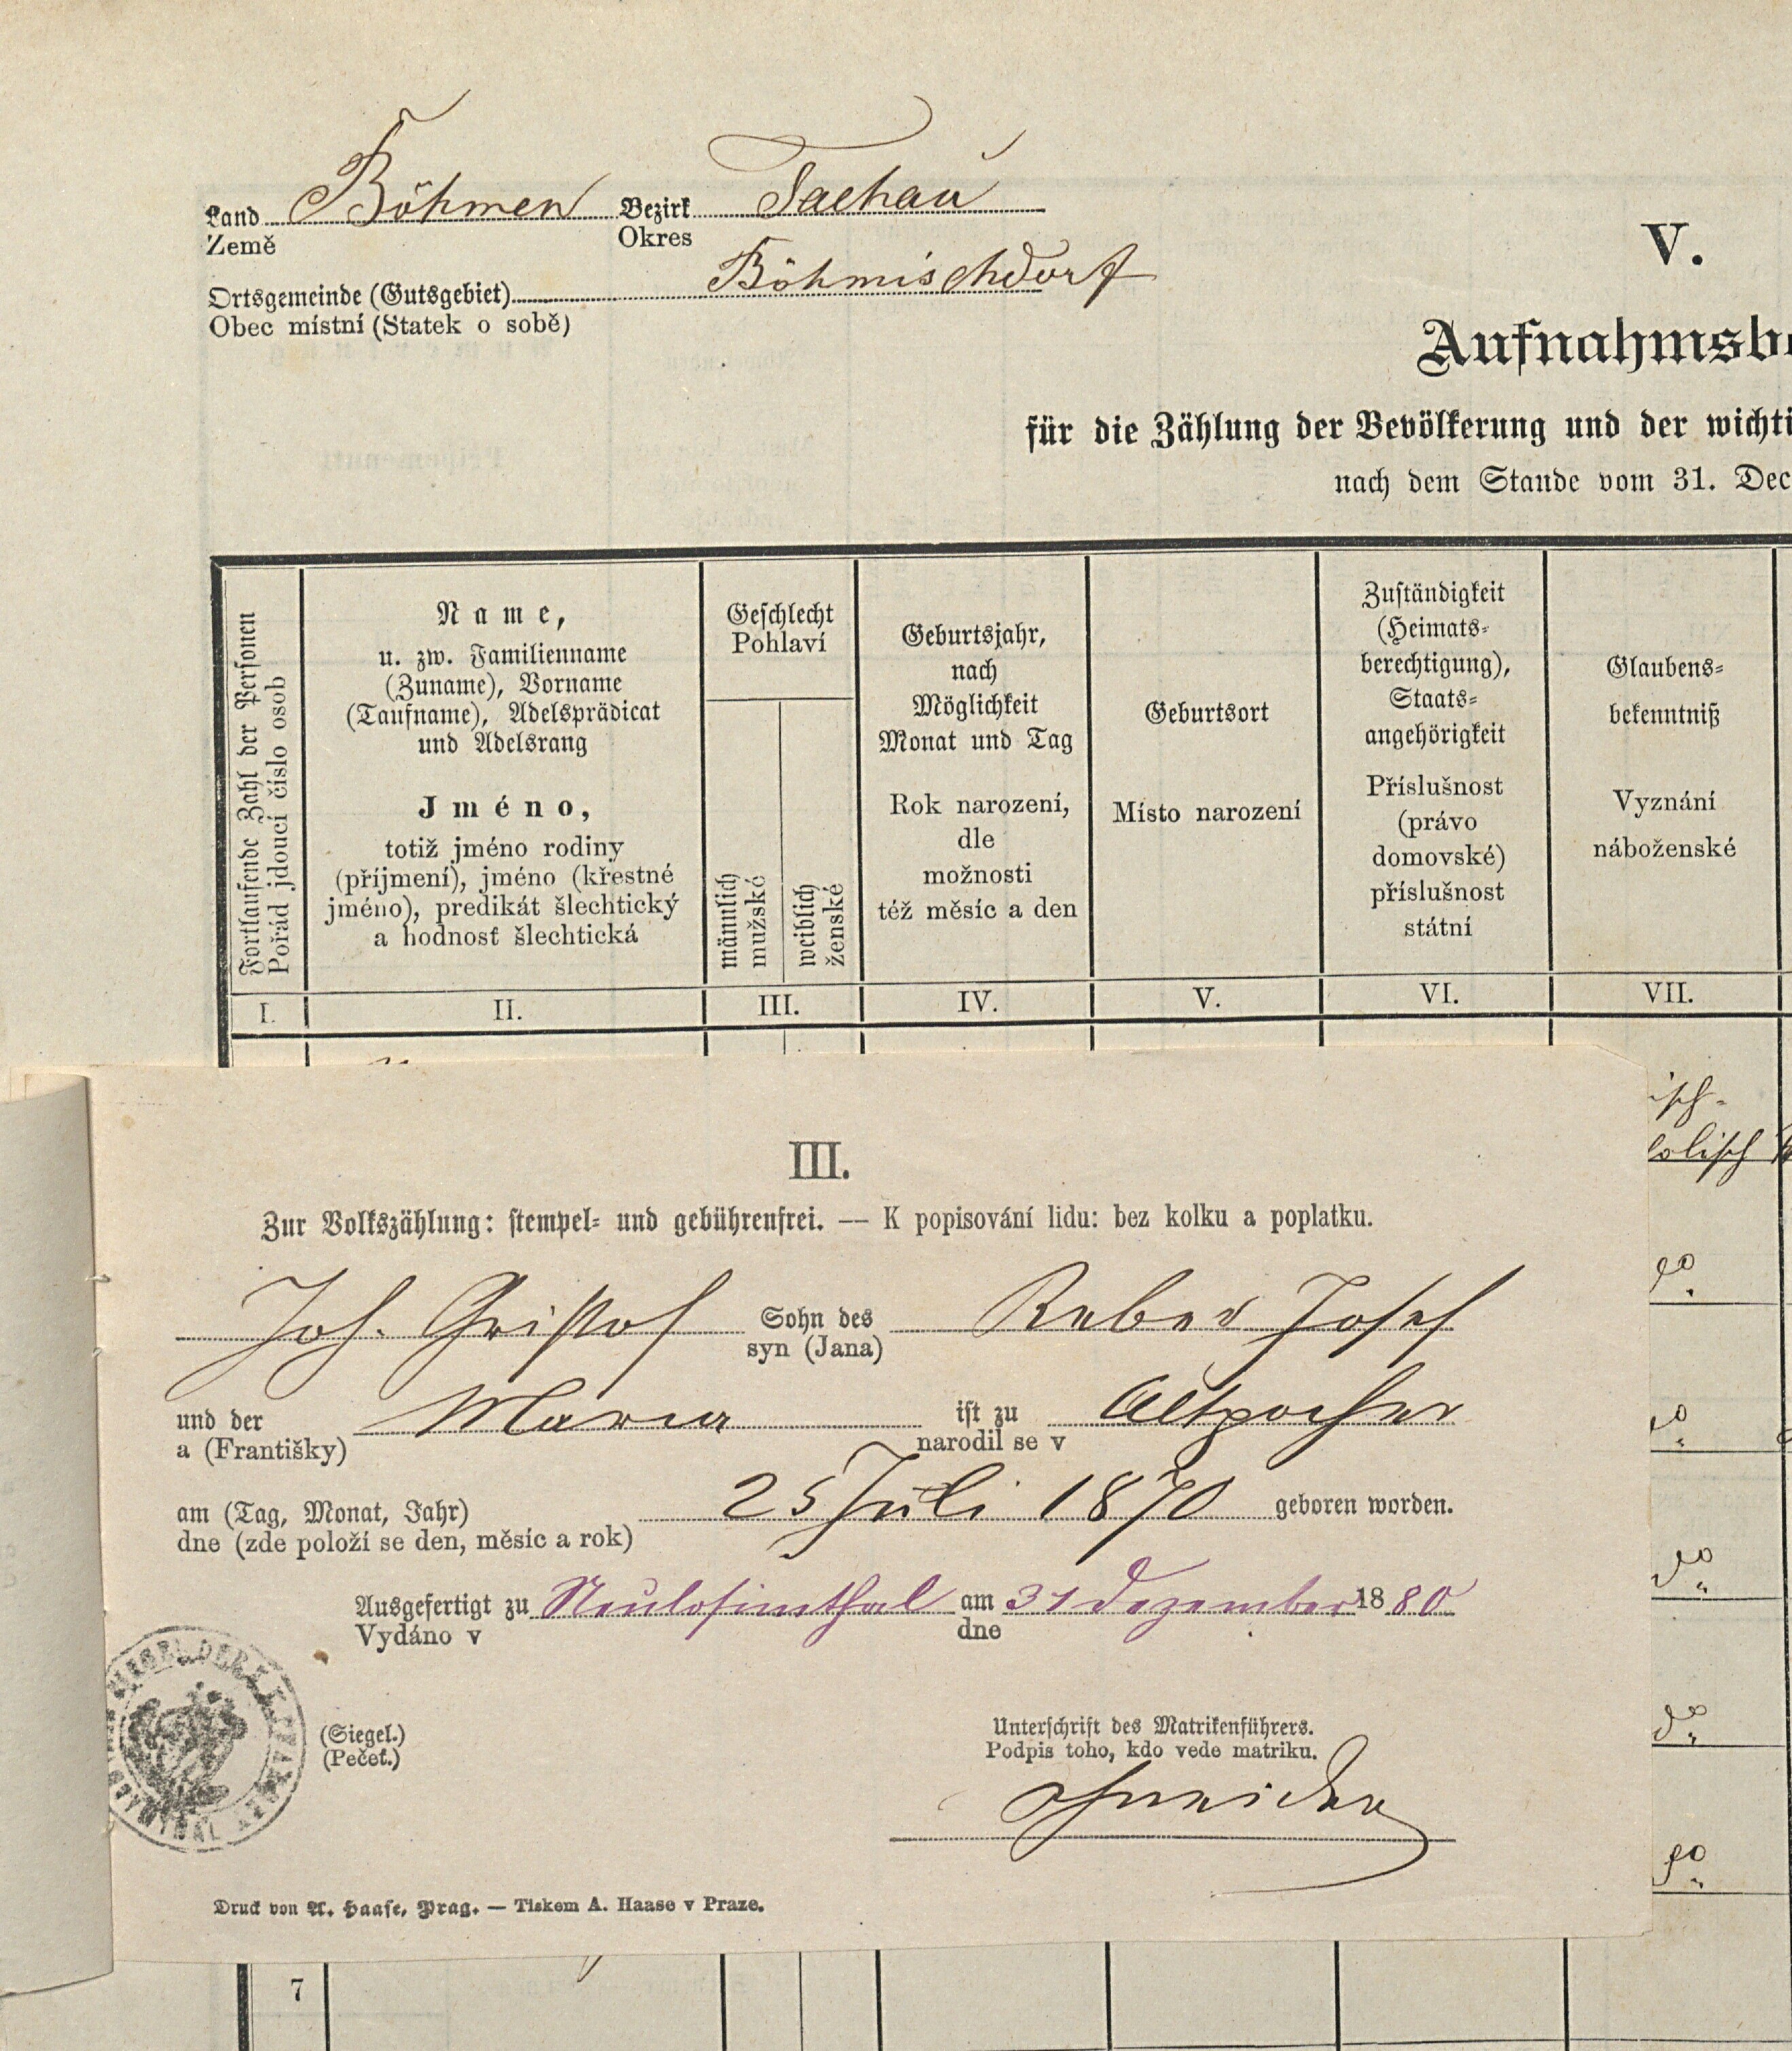 Land Böhmen Bezirk Tachau
Země Okres
Ortsgemeinde (Gutsgebiet) Böhmischdorf
Obec místní (Statek o sobě)
V.
Aufnahmsb
für die Zählung der Bevölkerung und der wichti
nach dem Stande vom 31. Dec
Fortlaufende Zahl der Personen
Pořád jdoucí číslo osob
Name,
u. zw. Familienname
(Zuname), Vorname
(Taufname), Adelsprädicat
und Adelsrang
Jméno,
totiž jméno rodiny
(příjmení), jméno (křestné
jméno), predikát šlechtický
a hodnosť šlechtická
Geschlecht
Pohlaví
männlich
mužské
weiblich
ženské
Geburtsjahr,
nach
Möglichkeit
Monat und Tag
Rok narození,
dle
možnosti
též měsíc a den
Geburtsort
Místo narození
Zuständigkeit
(Heimats-
berechtigung),
Staats-
angehörigkeit
Příslušnost
(právo
domovské)
příslušnost
státní
Glaubens-
bekenntniß
Vyznání
náboženské
I. II. III. IV. V. VI. VII.
isch-
olisch
do
do
do
do
do
III.
Zur Volkszählung: stempel- und gebührenfrei. — K popisování lidu: bez kolku a poplatku.
Joh. Gristof Sohn des Reber Josef
syn (Jana)
und der Maria ist zu Altpocher
a (Františky) narodil se v
am (Tag, Monat, Jahr) 25 Juli 1870 geboren worden.
dne (zde položí se den, měsíc a rok)
Ausgefertigt zu Neulosimthal am 31 Dezember 1880
Vydáno v dne
(Siegel.)
(Pečeť.)
Unterschrift des Matrikenführers.
Podpis toho, kdo vede matriku.
Schneider
Druck von A. Haase, Prag. — Tiskem A. Haase v Praze.
7